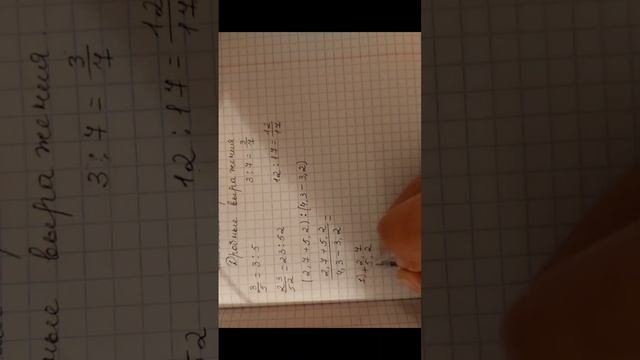 Дробные выражения
3/5 = 3 : 5    3 : 7 = 3/7
23/52 = 23 : 52    12 : 17 = 12/17
(2,7 + 5,2) : (4,3 - 3,2)
2,7 + 5,2 / 4,3 - 3,2 =
1) + 2,7
5,2